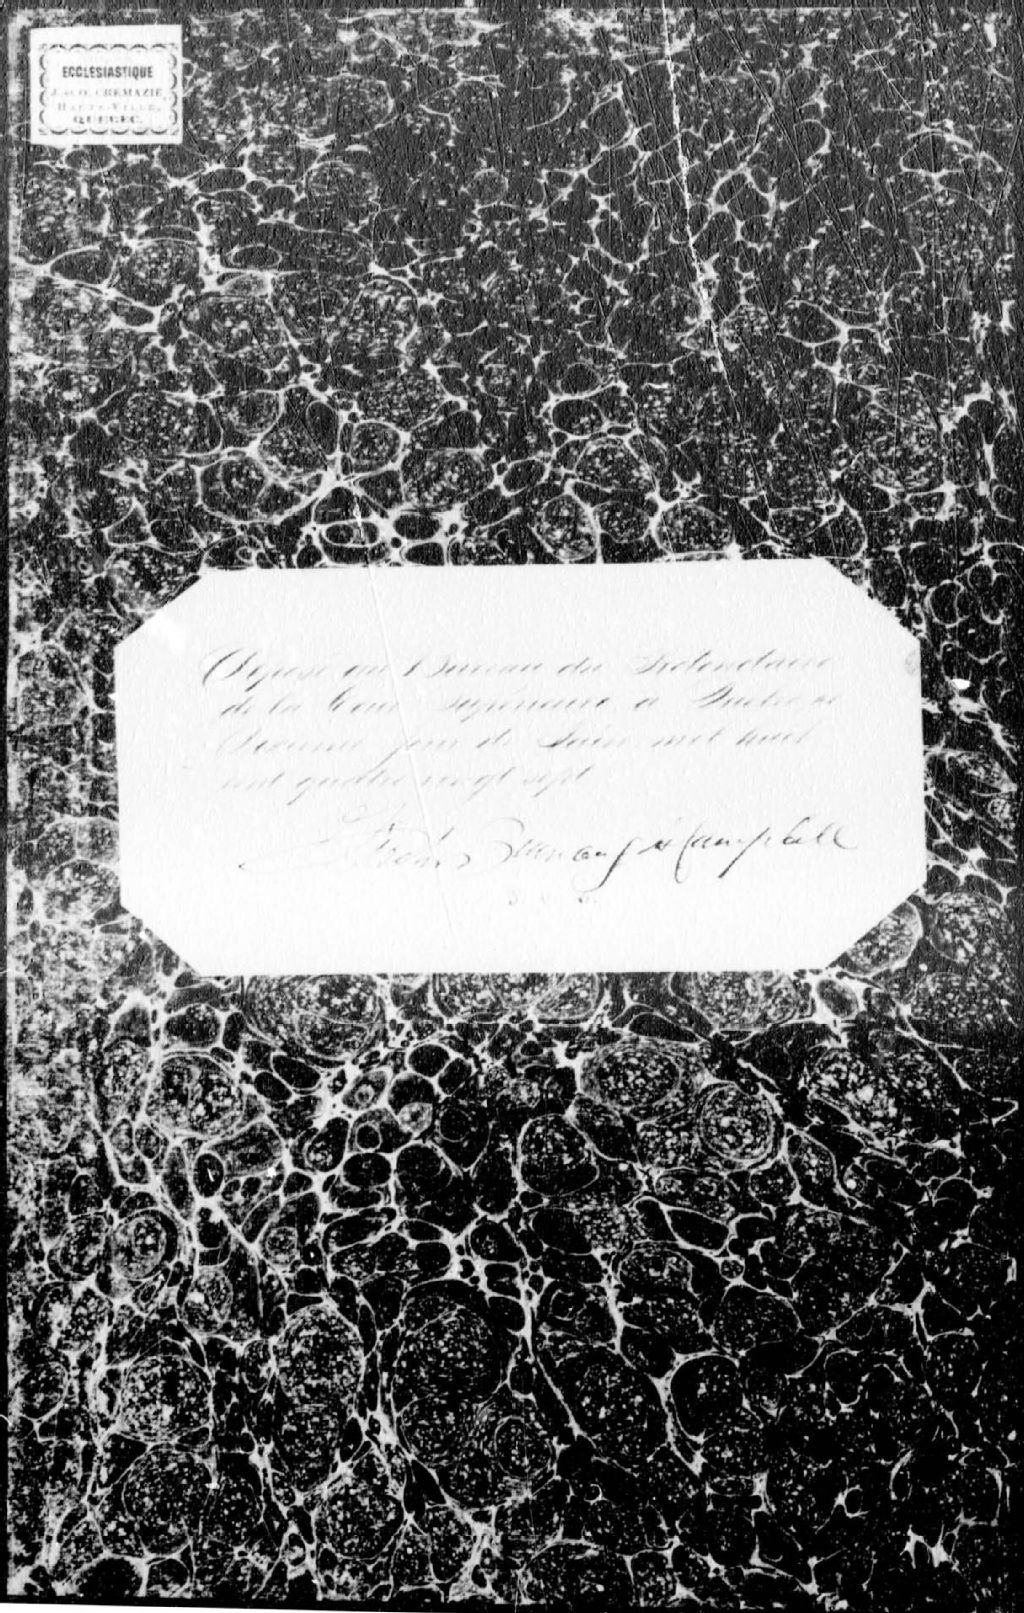 ECCLESIASTIQUE
J. & O. CREMAZIE,
HAUTE-VILLE,
QUEBEC.
Déposé au Bureau du Protonotaire
de la Cour Supérieure à Québec, ce
jour de mil huit
cent quatre vingt sept
Campbell